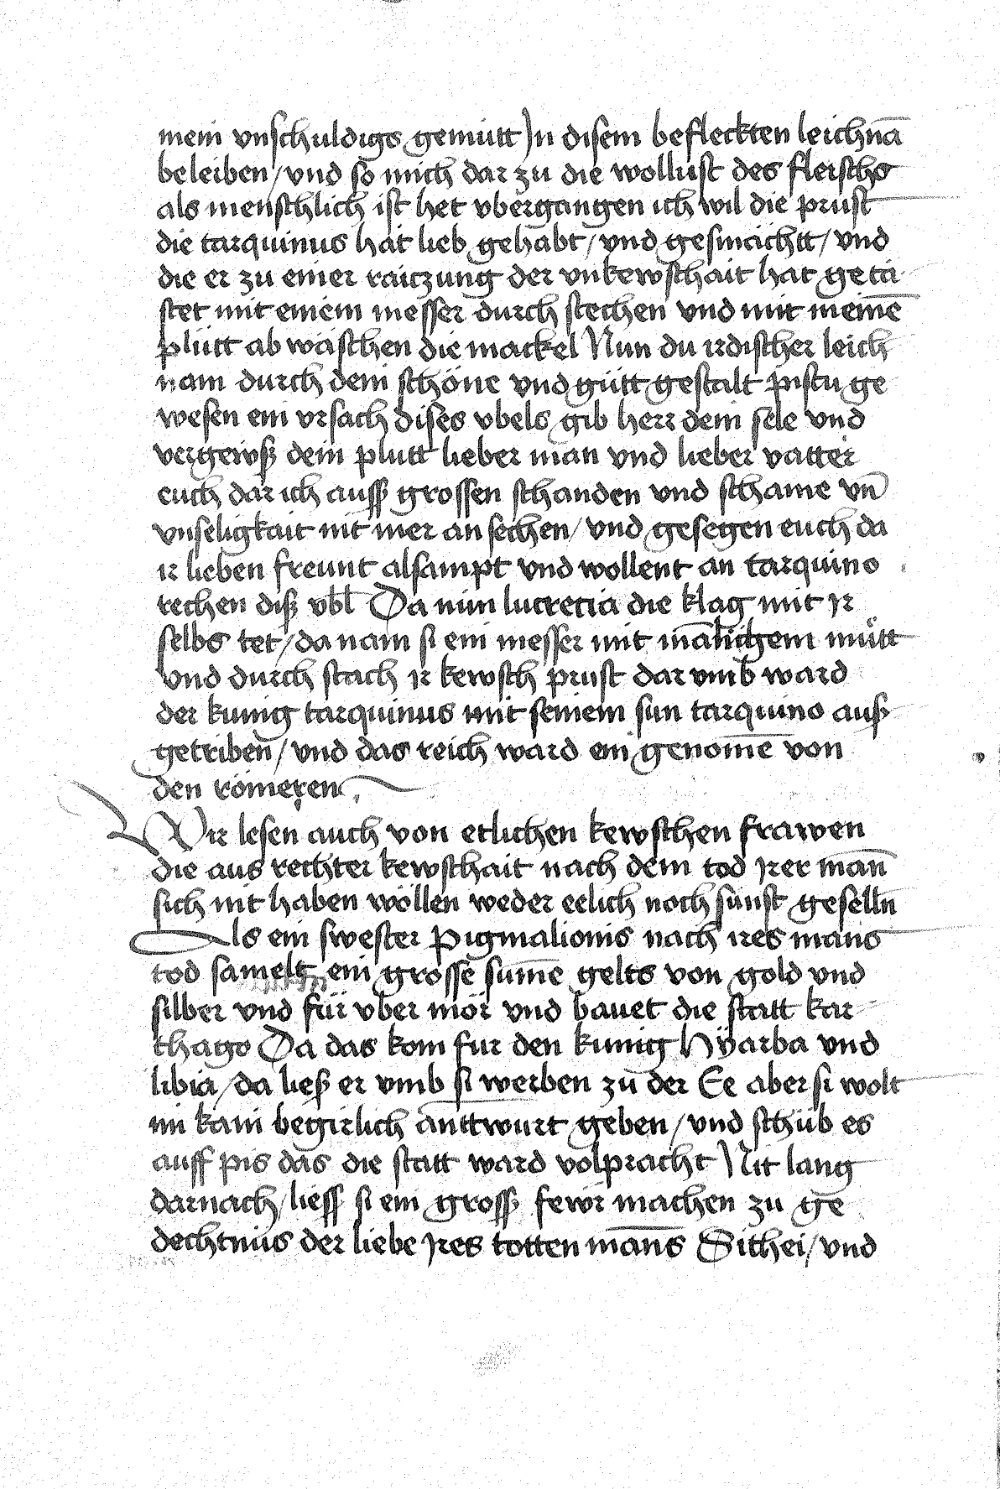 mein vnschuldigs gemütt In disem befleckten leichnā
beleiben / vnd so mich dar zu die wollust des fleischs
als menschlich ist het vbergangen ich wil die prust
die tarquinus hat lieb gehabt / vnd gesmächtt / vnd
die er zu einer raiczung der vnkewschait hat geta
stet mit einem messer durch stechen vnd mit meinē
plütt ab wäschen die mackel Nun du irdischer leich
nam durch dein schöne vnd gütt gestalt pistu ge
wesen ein vrsach dises vbels gib herr dein sele vnd
vergewsß dein plutt lieber man vnd lieber vatter
euch dar ich ausß grossen schanden vnd schame vn̄
vnseligkait nit mer an sechen / vnd gesegen euch da
ir lieben freunt alsampt vnd wollent an tarquino
rechen diß vbl Da nun lucretia die klag mit ir
selbs tet / da nam si ein messer mit mālichem mütt
vnd durch stach ir kewsch prust dar vmb ward
der kunig tarquinus mit seinem sun tarquino auß
getriben / vnd das reich ward ein genomē von
den römeren
Wir lesen auch von etlichen kewschen frawen
die aus rechter kewschait nach dem tod irer mān
sich nit haben wöllen weder eelich noch sünst geselln̄
Als ein swester pigmalionis nach ires mans
tod samelt ein grosse sum̄e gelts von gold vnd
silber vnd für vber mör vnd bauet die statt kar
thago Da das kom fur den kunig Hÿarba vnd
libia / da ließ er vmb si werben zu der Ee aber si wolt
im kain begirlich anttwurt geben / vnd schüb es
auff pis das die statt ward volpracht Nit lang
darnach / liess si ein grosß fewr machen zu ge
dechtnüs der liebe ires totten māns Sithei / vnd